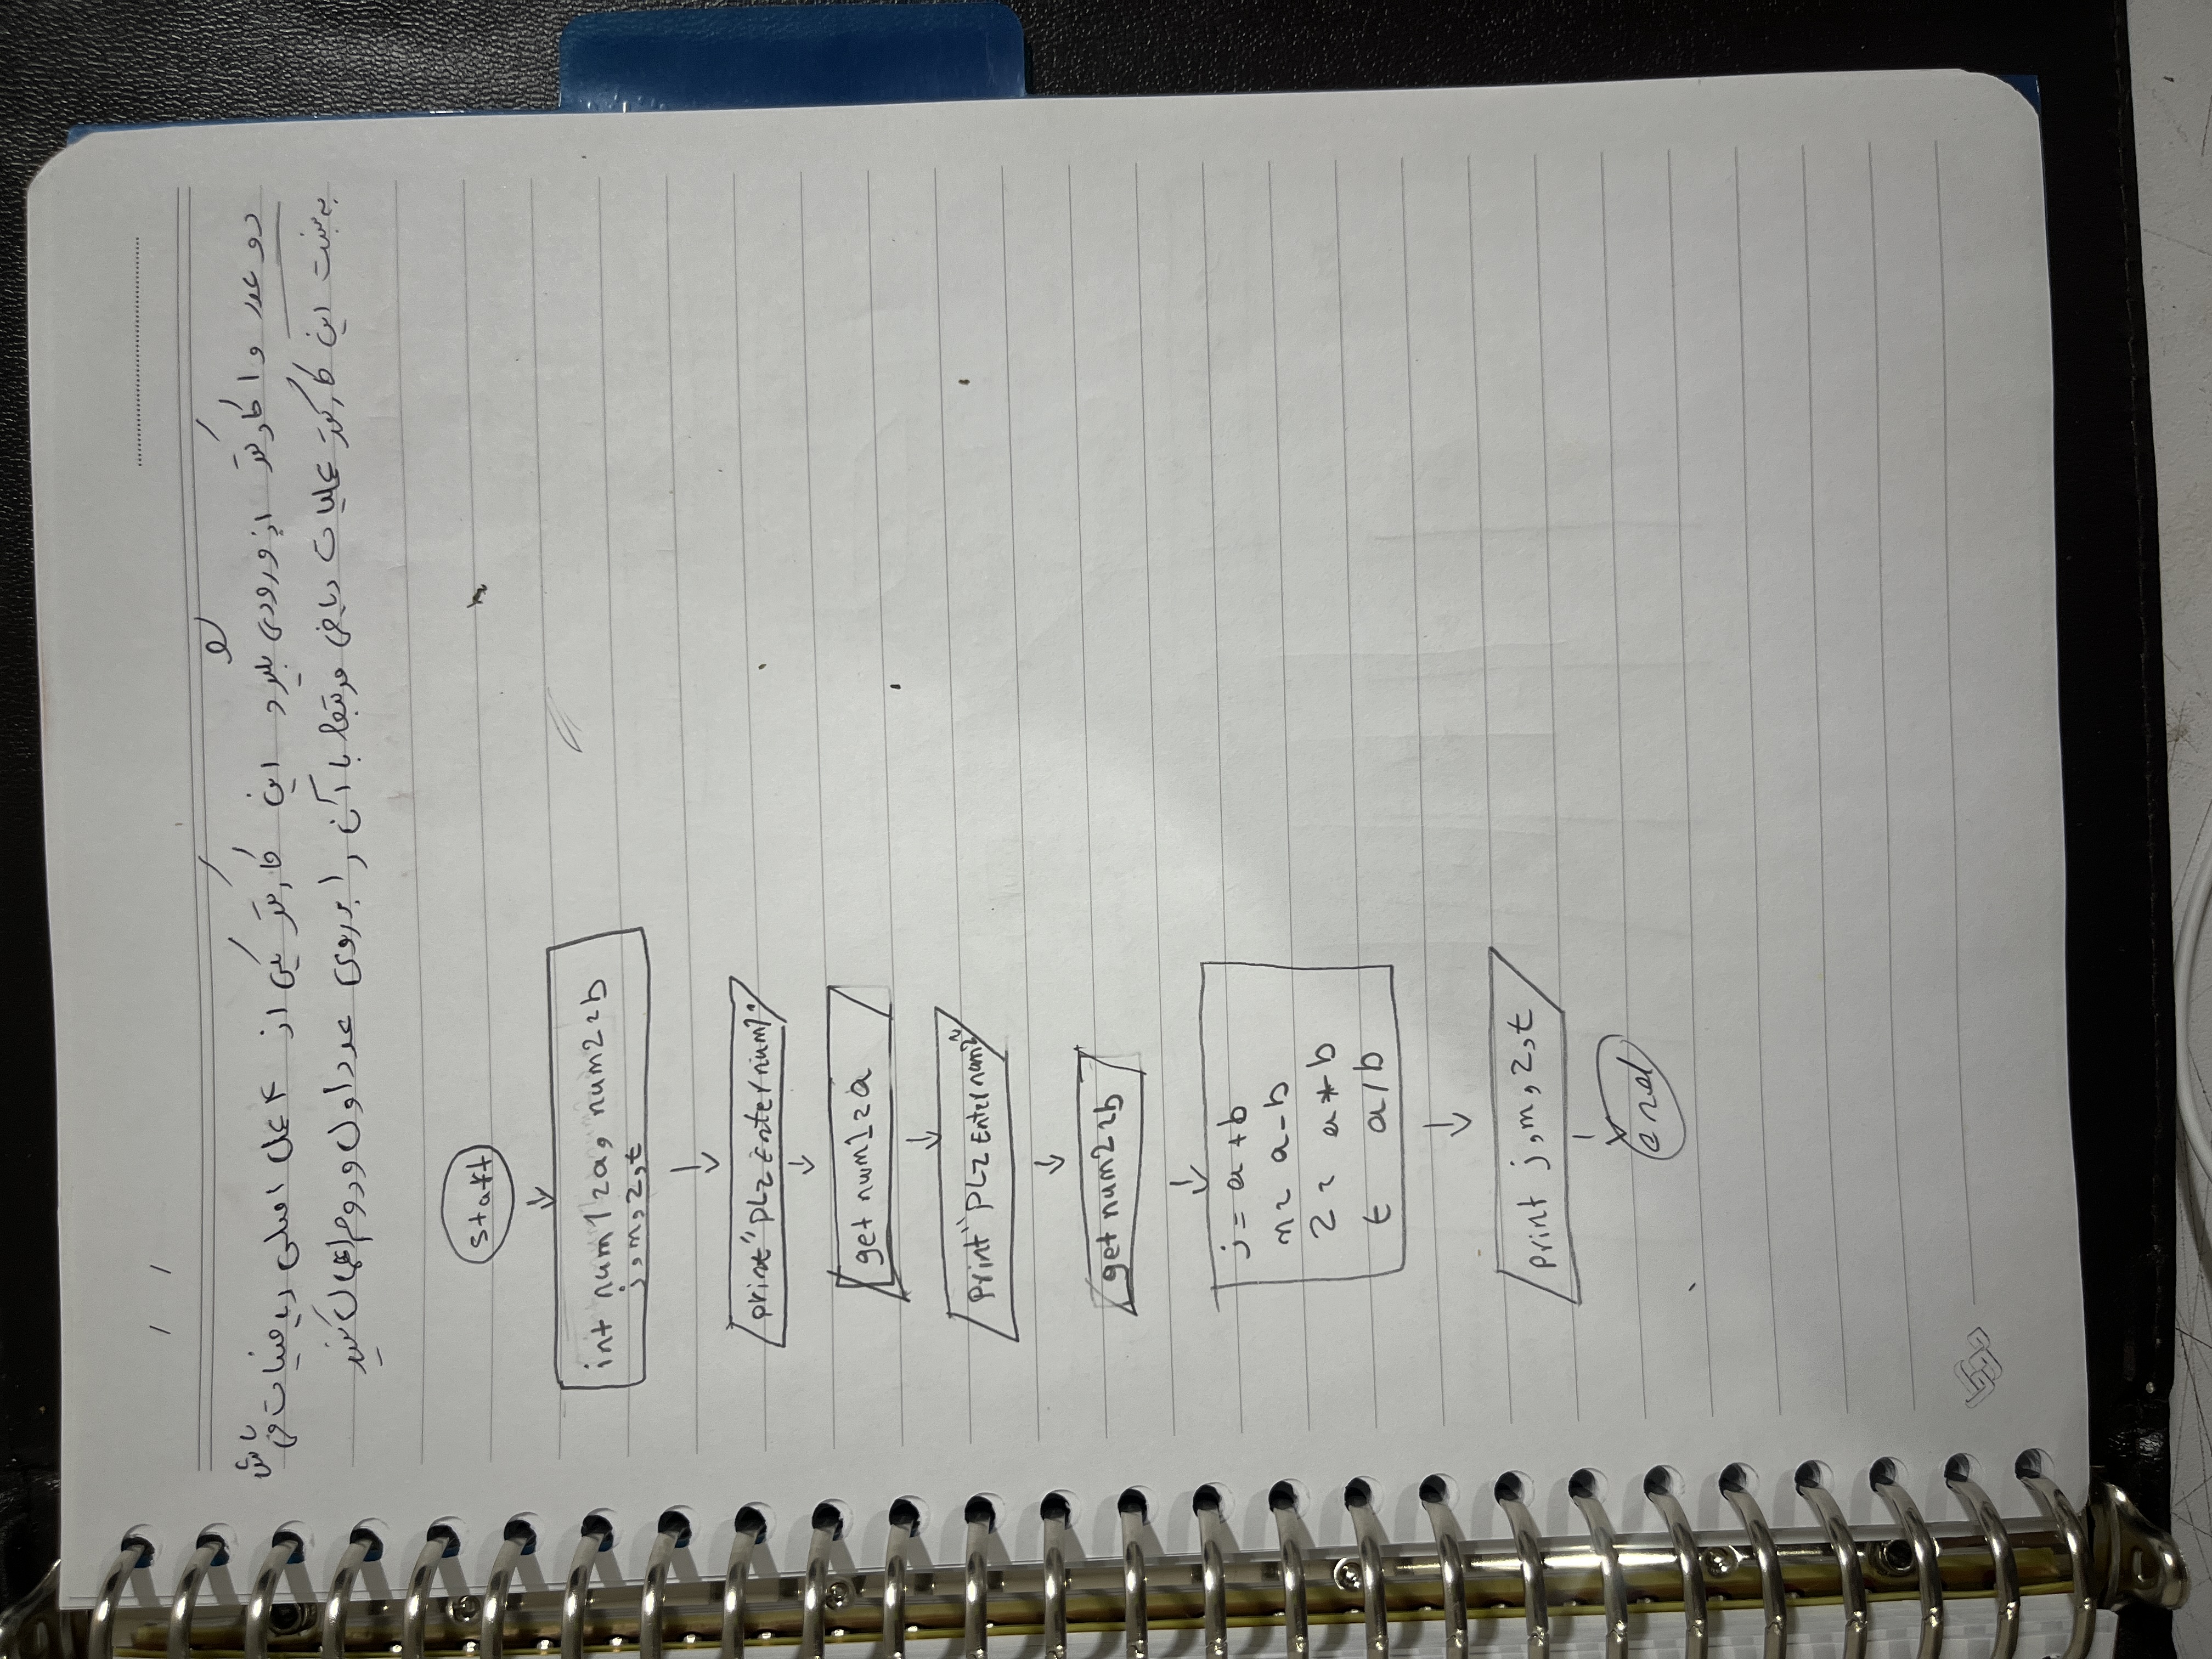 دو عدد و ۱ کارکتر از ورودی بگیرد این کارکتر یکی از ۴ عمل اصلی ریاضیات می باشد
به نسبت این کارکتر عملیات ریاضی مرتبط با آن را بر روی عدد اول و دوم اعمال کنید
start
int num1=a, num2=b
j, m, z, t
print "PLz Enter num1"
get num1=a
Print "PLz Enter num2"
get num2=b
j = a + b
m = a - b
z = a * b
t a / b
print j, m, z, t
end